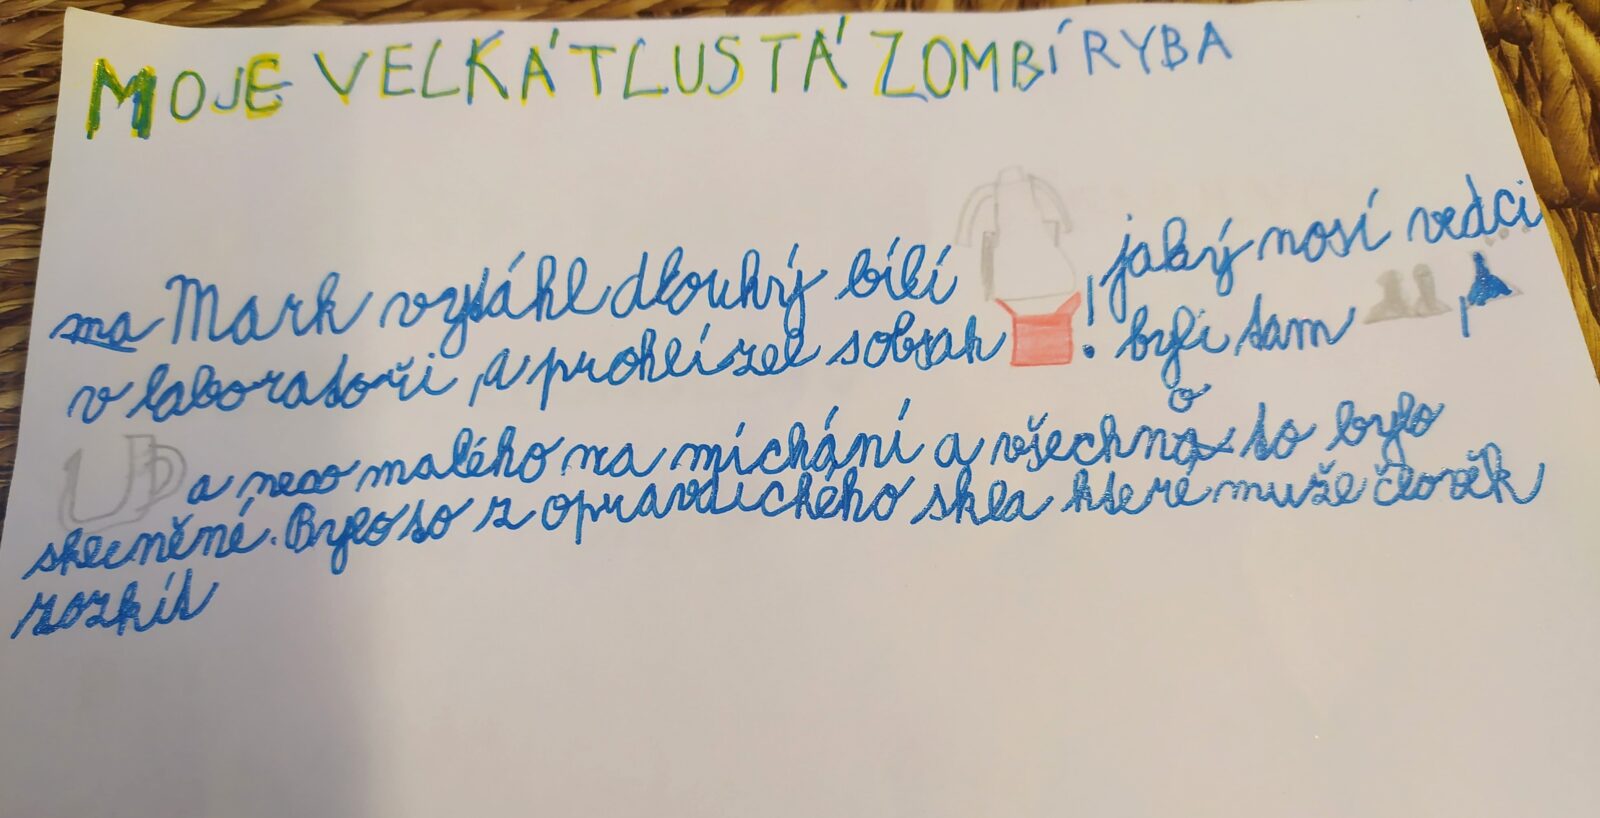 MOJE VELKÁ TLUSTÁ ZOMBÍ RYBA
ma Mark vytáhl dlouhý bílí jaký nosí vedci
v laboratoři , a prohlí zel sobsah ! byli tam ,
a neco malého na míchání a všechno to bylo
skecněné. Bylo to z opravdického skla které muže človék
rozkít